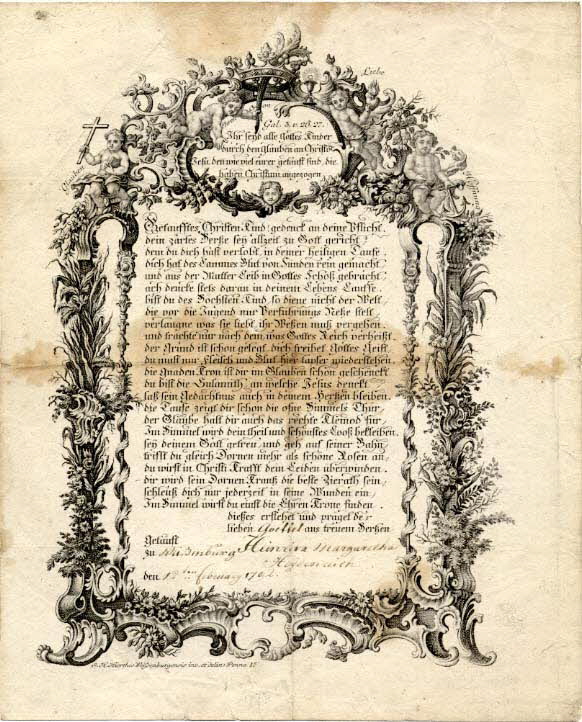 Liebe
Gal. 3. v. 26. 27.
Ihr seyd alle Gottes Kinder
durch den Glauben an Christo
Jesu. den wie viel eurer getaufft sind, die
haben Christum angezogen
Glauben
Hoffnung
Getaufftes Christen Kind: gedenck an deine Pflicht
dein zartes Hertze sey allzeit zu Gott gericht
dem du dich hast verlobt, in deiner heiligen Tauffe
dich hat des Lammes Blut von Sünden rein gemacht
und aus der Mutter Leib in Gottes Schoß gebracht
ach dencke stets daran in deinem Lebens Lauffe
bist du des Höchsten Kind, so diene nicht der Welt
die vor die Jugend nur Verführungs Netze stelt
verlange was sie liebt, ihr Weßen muß vergehen
und trachte nur nach dem was Gottes Reich verheißt
der Grund ist schon gelegt, dich treibet Gottes Geist
du must nur Fleisch und Blut hier tapfer wiederstehen
die Gnaden Cron ist dir im Glauben schon geschenckt
du bist die Sulamith, an welche Jesus denckt
laß sein Gedächtnus auch in deinem Hertzen bleiben.
die Tauffe zeigt dir schon die ofne Himmels Thür
der Glaube halt dir auch das rechte Kleinod für
Im Himmel wird dein theil und schönstes Looß bekleiben
sey deinem Gott getreu, und geh auf seiner Bahn
triffst du gleich Dornen mehr als schöne Rosen an
du wirst in Christi Krafft dem Leiden überwinden.
dir wird sein Dornen Crantz die beste Zierath sein
schleuß dich nur jederzeit in seine Wunden ein
Im Himmel wirst du einst die Ehren Crone finden
dieses erflehet und
lieben aus treuem Hertzen
Getaufft
zu Weißenburg Margaretha
den 12ten February 1762.
inv. et delin: